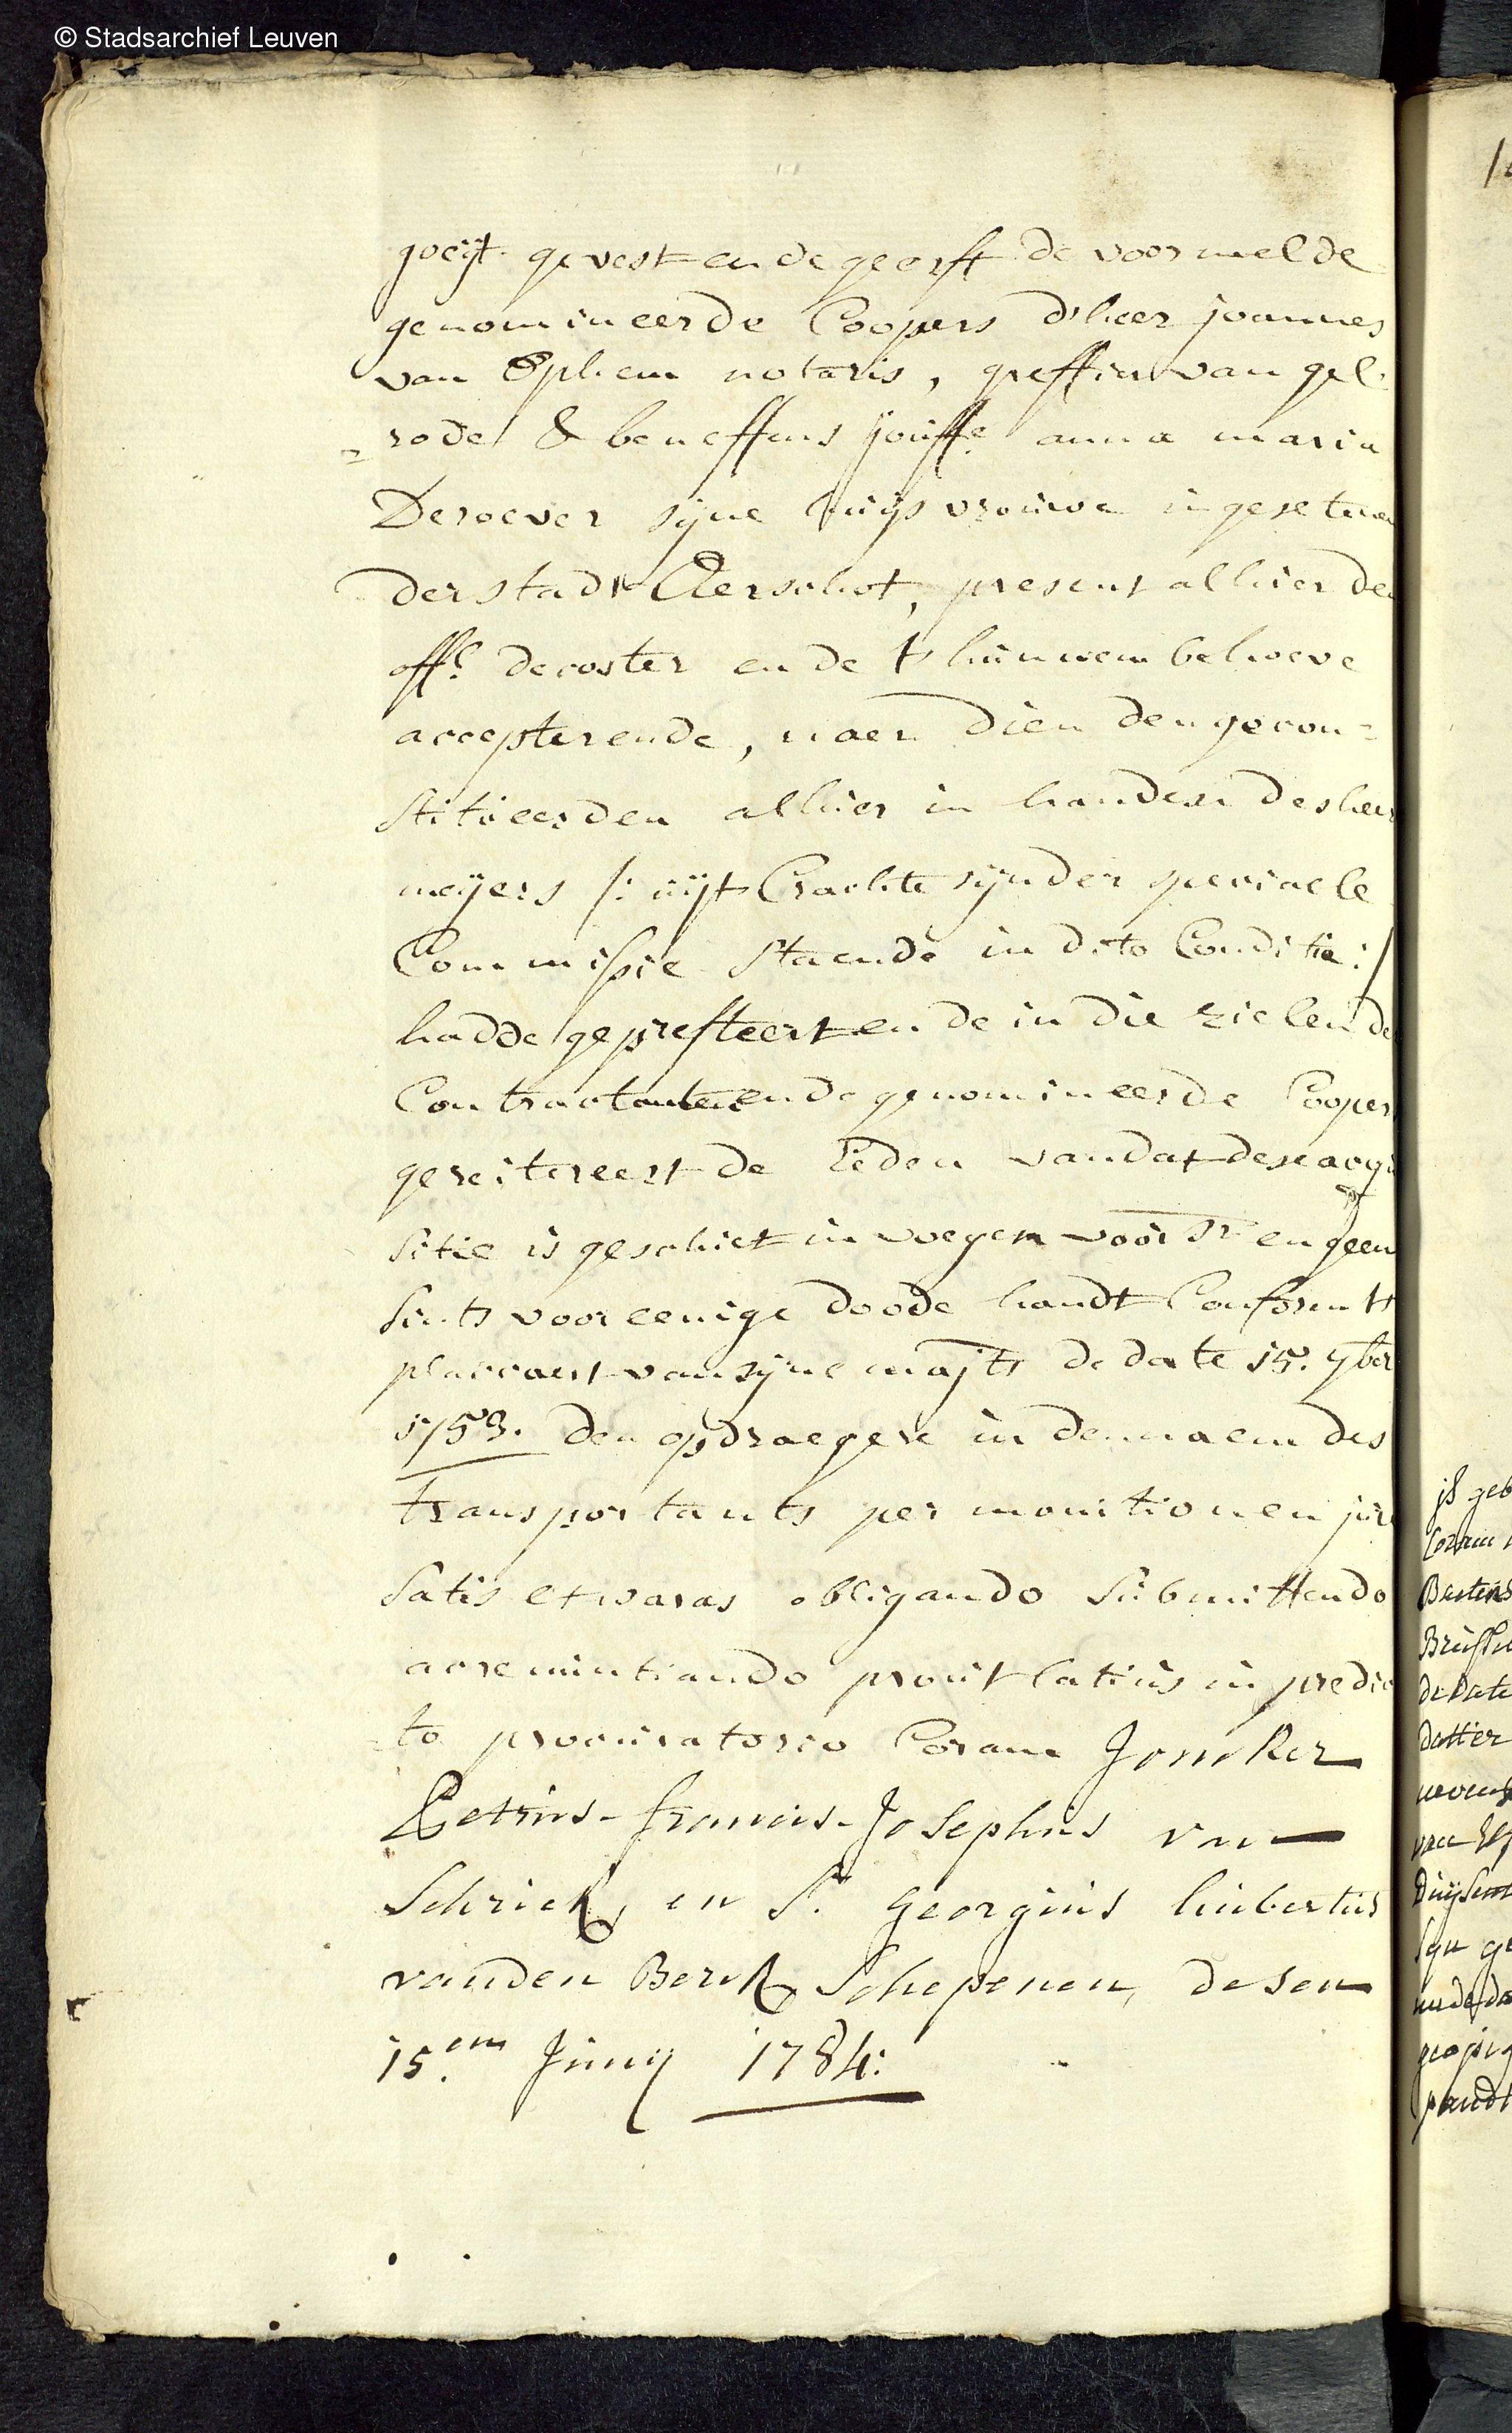 © Stadsarchief Leuven
goeijt gevest ende geerft de voormelde
genomineerde Coopers d'heer joannes
van Ophem notaris, greffier van gel=
=rode & beneffens jouffe. anna maria
Deroever sijne huijsvrouwe ingesetenen
der stadt Aerschot, present alhier den
offl. decoster ende t' hunnen behoeve
accepterende, naer dien den gecon=
stitueerden alhier in handen des heer
meijers /: uijt Crachte sijnder speciaele
Commissie staende in dito Conditie :/
hadde gepresteert ende in die zielen de
Contractanten ende genomineerde Coopers
gereitereert de Eeden van dat dese acqui
sitie is geschiet in voegen voorsr. en geen
sints voor eenige doode handt Conform t'
placcaert van sijne majts de date 15. 7ber
1753. den opdraegere in den naem des
transportants per monitionem jure
satis et waras obligando submittendo
ac renuntiando prout latius in predic
=to procuratorio Coram Joncker
Petrus-francis-Josephus van
Schrick, en Sr. Georgius huibertus
vanden Berck Schepenen, desen
15.em Junij 1784:
js geb
Coram
Bastens
Brussel
de date
datter
nevens
van
Duijsent
sijn ge
mede da
geapig
pandt